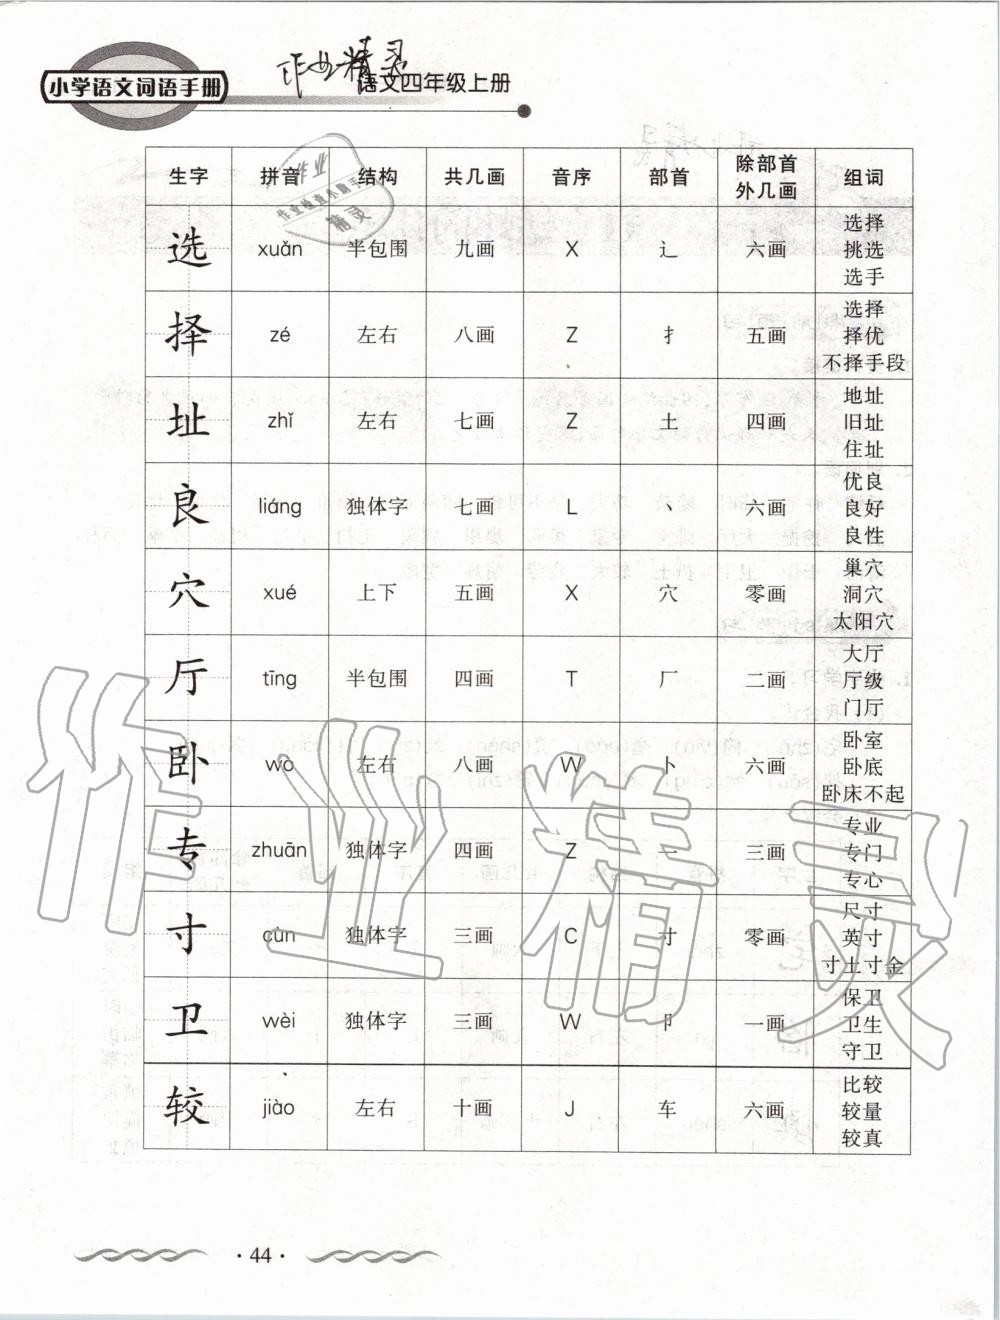 小学语文词语手册
作业精灵
语文四年级上册
作业
作业检查小助手
精灵
生字 拼音 结构 共几画 音序 部首 除部首外几画 组词
选 xuǎn 半包围 九画 X 辶 六画 选择 挑选 选手
择 zé 左右 八画 Z 扌 五画 选择 择优 不择手段
址 zhǐ 左右 七画 Z 土 四画 地址 旧址 住址
良 liáng 独体字 七画 L 丶 六画 优良 良好 良性
穴 xué 上下 五画 X 穴 零画 巢穴 洞穴 太阳穴
厅 tīng 半包围 四画 T 厂 二画 大厅 厅级 门厅
卧 wò 左右 八画 W 卜 六画 卧室 卧底 卧床不起
专 zhuān 独体字 四画 Z 一 三画 专业 专门 专心
寸 cùn 独体字 三画 C 寸 零画 尺寸 英寸 寸土寸金
卫 wèi 独体字 三画 W 卩 一画 保卫 卫生 守卫
较 jiào 左右 十画 J 车 六画 比较 较量 较真
作业精灵
·44·